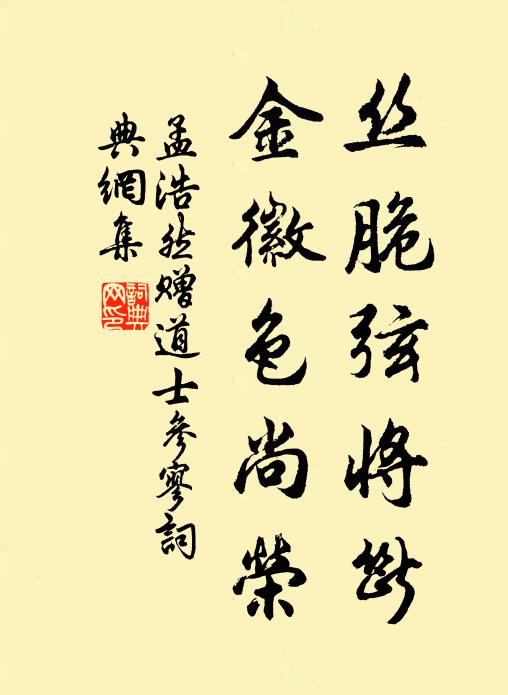 丝脆弦将断
金徽色尚荣
孟浩然赠道士参寥词
典網集
詞典網印